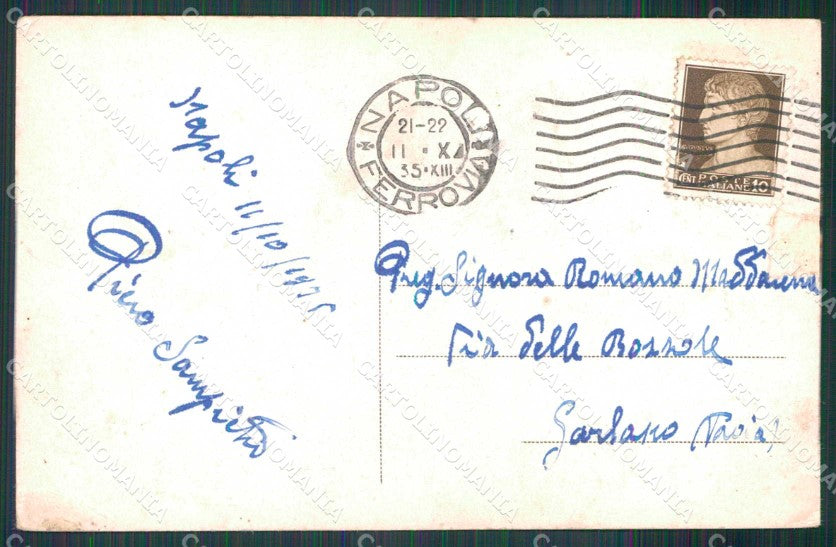 Napoli 11/10/1935
Piero Sampietro
NAPOLI
21-22
11 · X
35·XIII
FERROVIA
POSTE
ITALIANE
CENT 10
Preg. Signora Romano Maddalena
Via delle Bozzole
Garlasco (Pavia)
CARTOLINOMANIA